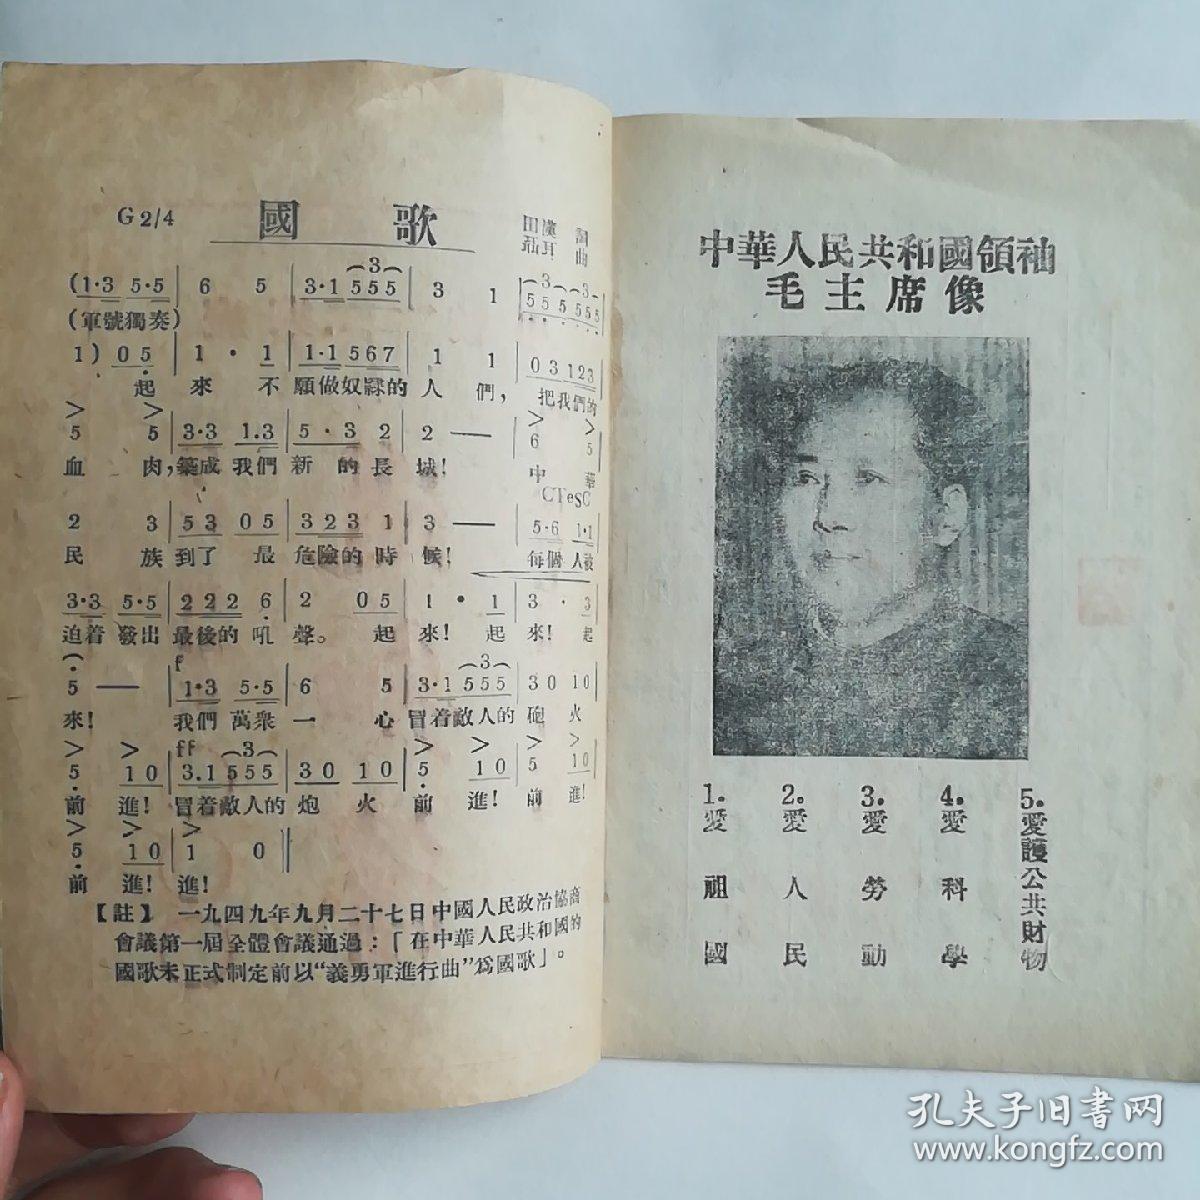 G 2/4 國歌 田漢 詞
聶耳 曲
(1·3 5·5 | 6 5 | 3·1 555 | 3 1 | 555 555
(軍號獨奏)
1) 0 5 | 1 · 1 | 1·1 567 | 1 1 | 0 3 123
起來 不願做奴隸的人們, 把我們的
5 5 | 3·3 1.3 | 5 · 3 2 | 2 — | 6 5
血肉,築成我們新的長城! 中華
CTesC
2 3 | 53 05 | 323 1 | 3 — | 5·6 1·1
民族到了最危險的時候! 每個人被
3·3 5·5 | 222 6 | 2 05 | 1 · 1 | 3 · 3
迫着發出最後的吼聲。起來! 起來! 起
f
5 — | 1·3 5·5 | 6 5 | 3·1 555 | 30 10
來! 我們萬衆一心冒着敵人的砲火
ff
5 10 | 3.1 555 | 30 10 | 5 10 | 5 10
前進! 冒着敵人的炮火前進! 前進!
5 10 | 1 0
前進! 進!
【註】 一九四九年九月二十七日中國人民政治協商
會議第一屆全體會議通過:「在中華人民共和國的
國歌未正式制定前以“義勇軍進行曲”爲國歌」。
中華人民共和國領袖
毛主席像
1.愛祖國
2.愛人民
3.愛勞動
4.愛科學
5.愛護公共財物
孔夫子旧书网
www.kongfz.com